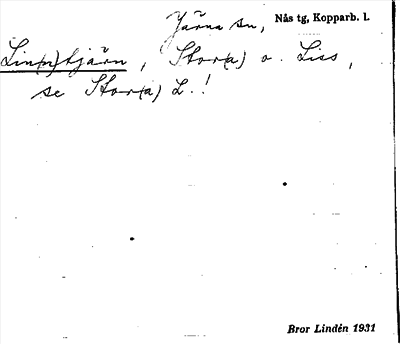 Järna sn, Nås tg, Kopparb. l.
Lin(n)tjärn, Stor(a) o. Liss,
se Stor(a) L.!
Bror Lindén 1931